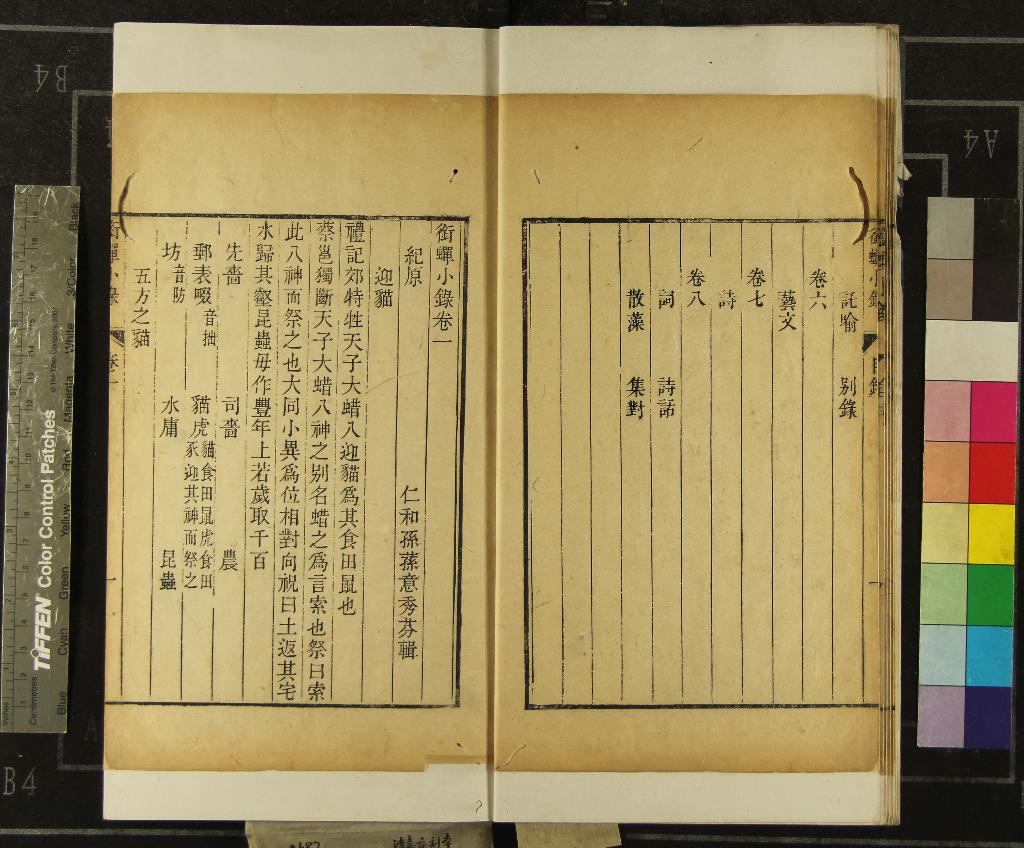 託喻 别錄
卷六
藝文
卷七
詩
卷八
詞 詩話
散藻 集對
銜蟬小錄卷一
仁和孫蓀意秀芬輯
紀原
迎貓
禮記郊特牲天子大蜡八迎貓爲其食田鼠也
蔡邕獨斷天子大蜡八神之别名蜡之爲言索也祭曰索
此八神而祭之也大同小異爲位相對向祝曰土返其宅
水歸其壑昆蟲毋作豐年上若歲取千百
先嗇 司嗇 農
郵表畷音拙 貓虎貓食田鼠虎食田豕迎其神而祭之
坊音防 水庸 昆蟲
五方之貓
銜蟬小錄 卷一 一
TIFFEN Color Control Patches
Blue Cyan Green Yellow Red Magenta White 3/Color Black
Centimetres
Inches
B4
A4
B4